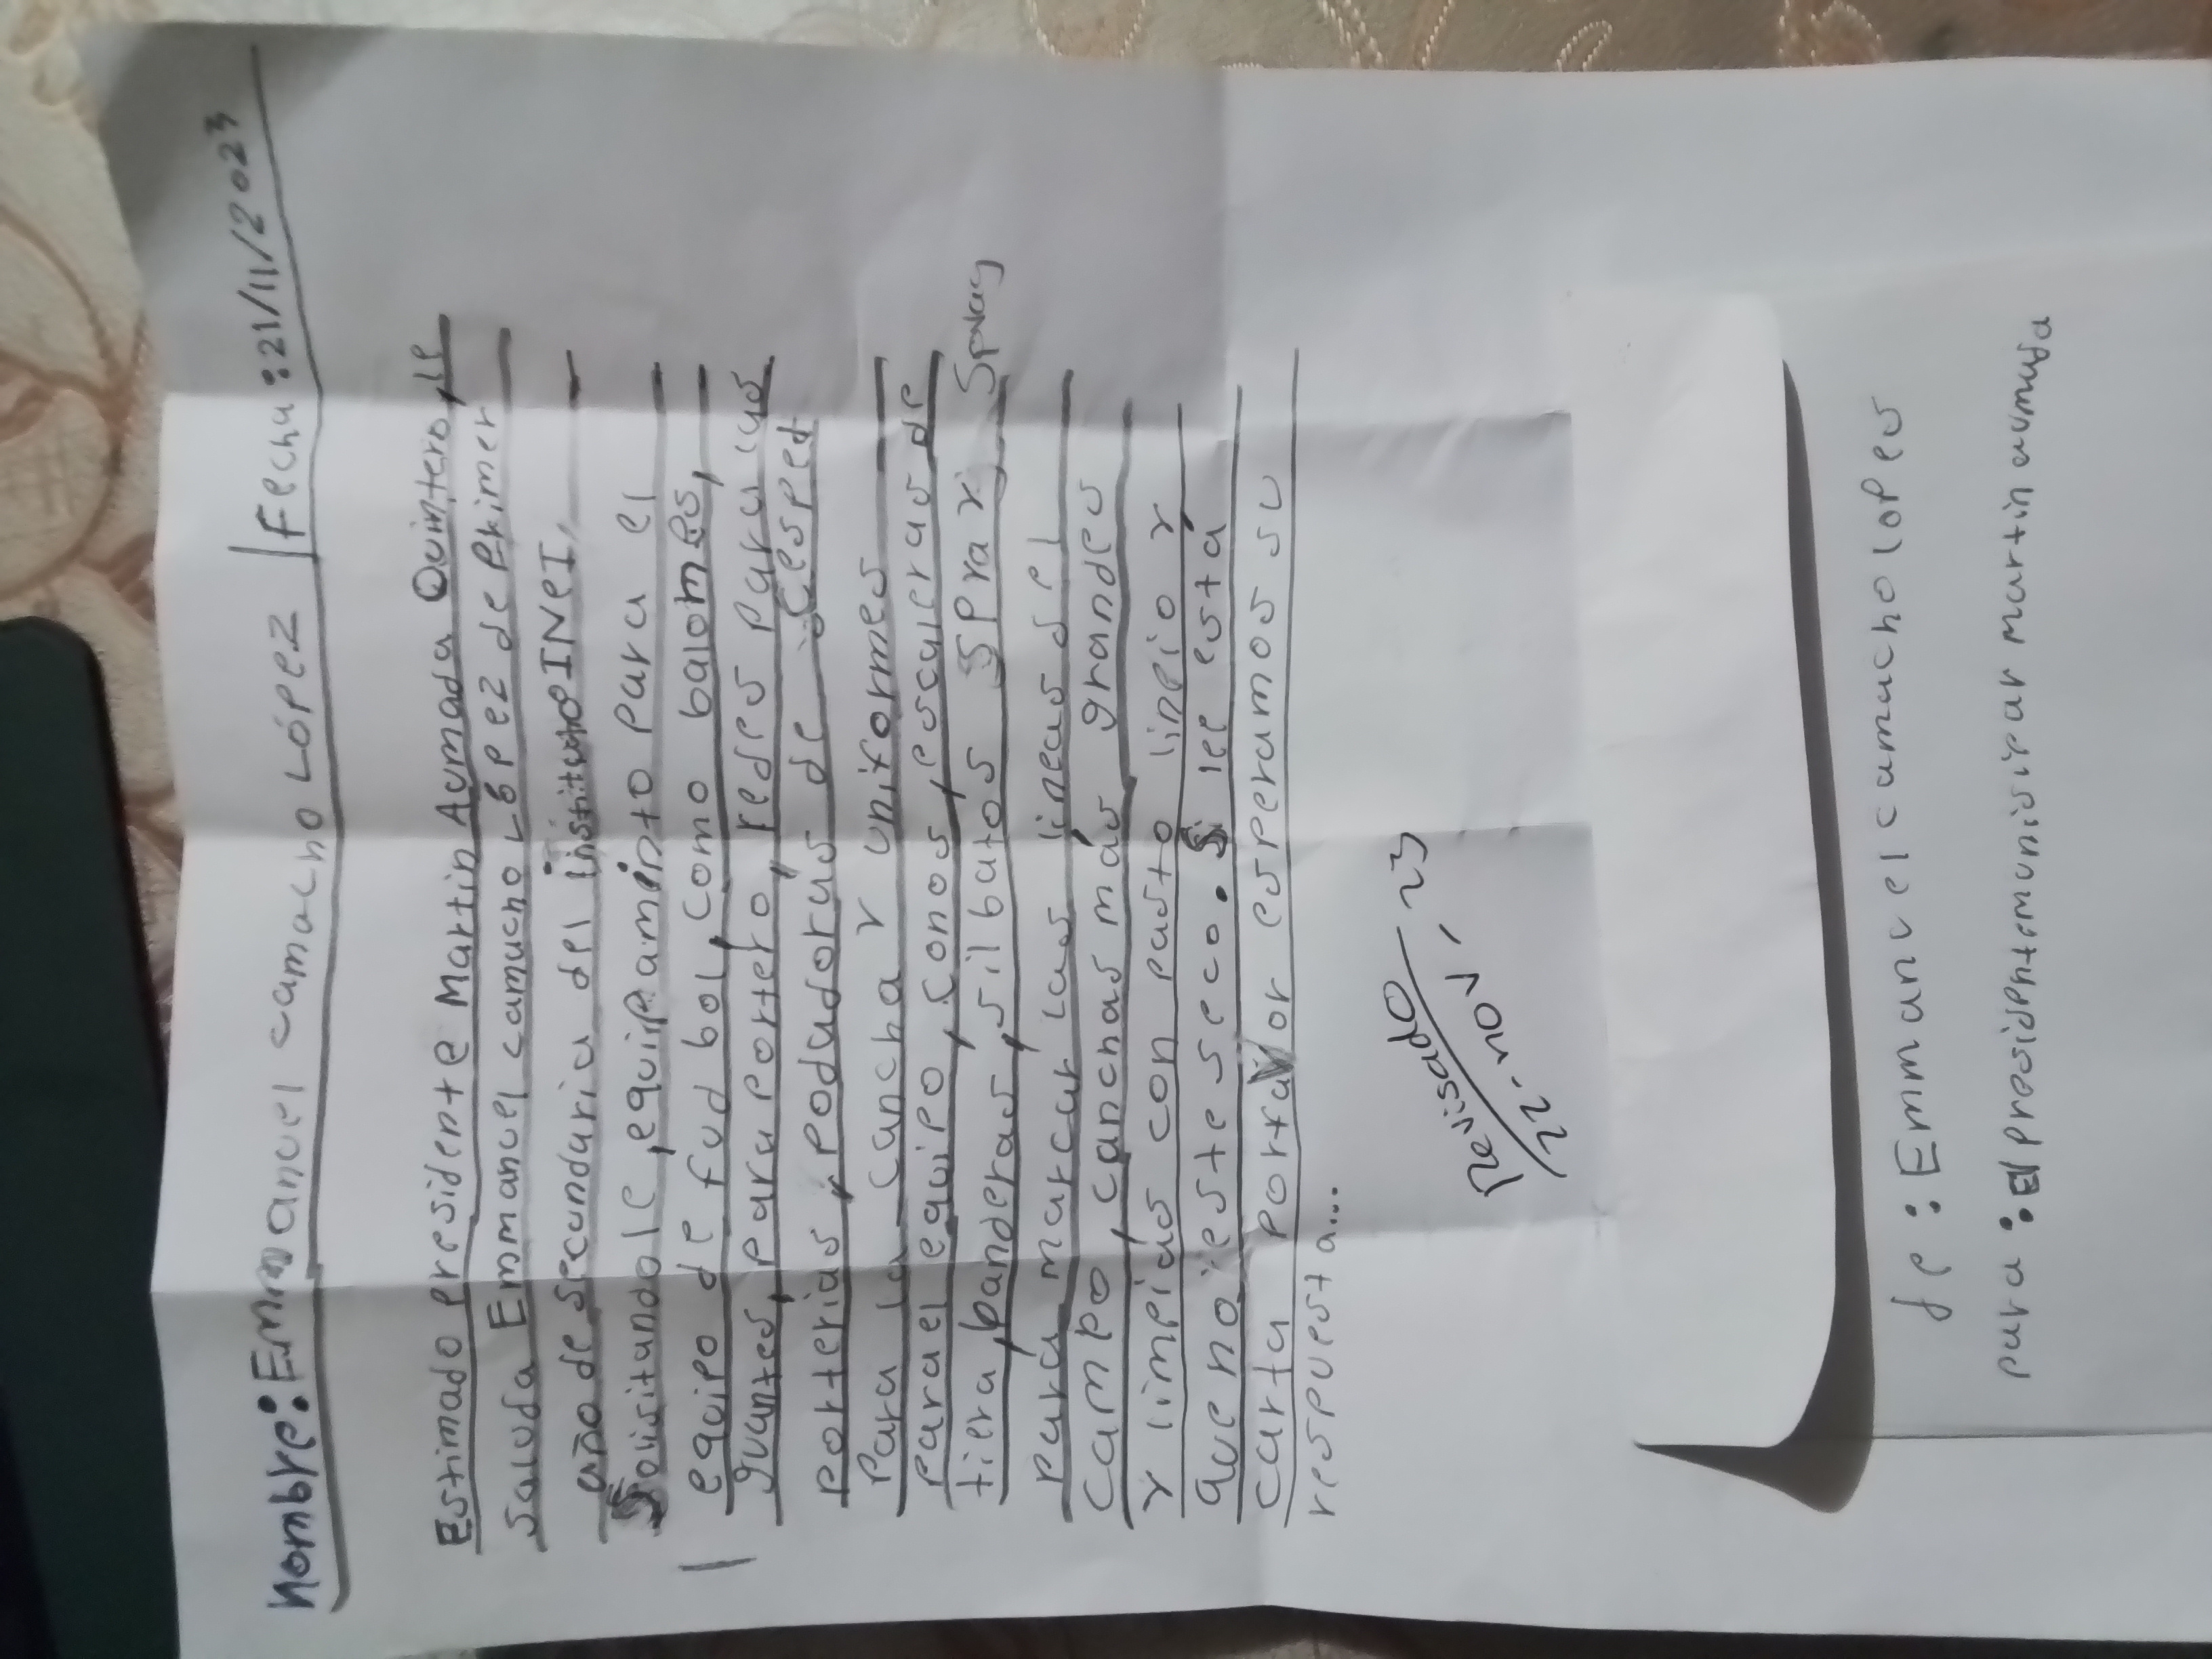 Nombre: Emmanuel camacho López | fecha: 21/11/2023
Estimado presidente Martin Aumada Quintero, le
saluda Emmanuel camacho López de Primer
año de secundaria del instituto INEI,
Solisitandole, equipaminto para el
equipo de fud bol, como balones,
guantes, para portero, redes para las
porterias, podadoras de Cesped
Para la cancha y uniformes
Para el equipo, Conos, escaleras de
tiera, banderas, silbatos Spray Spray
para marcar las lineas del
campo, canchas más grandes
y limpias con pasto linpio y
que no este seco. Si lee está
carta porfavor esperamos su
respuesta...
Revisado
22-nov, 23
de: Emmanuel camacho lopes
para: El presidentemunisipar martin aumada